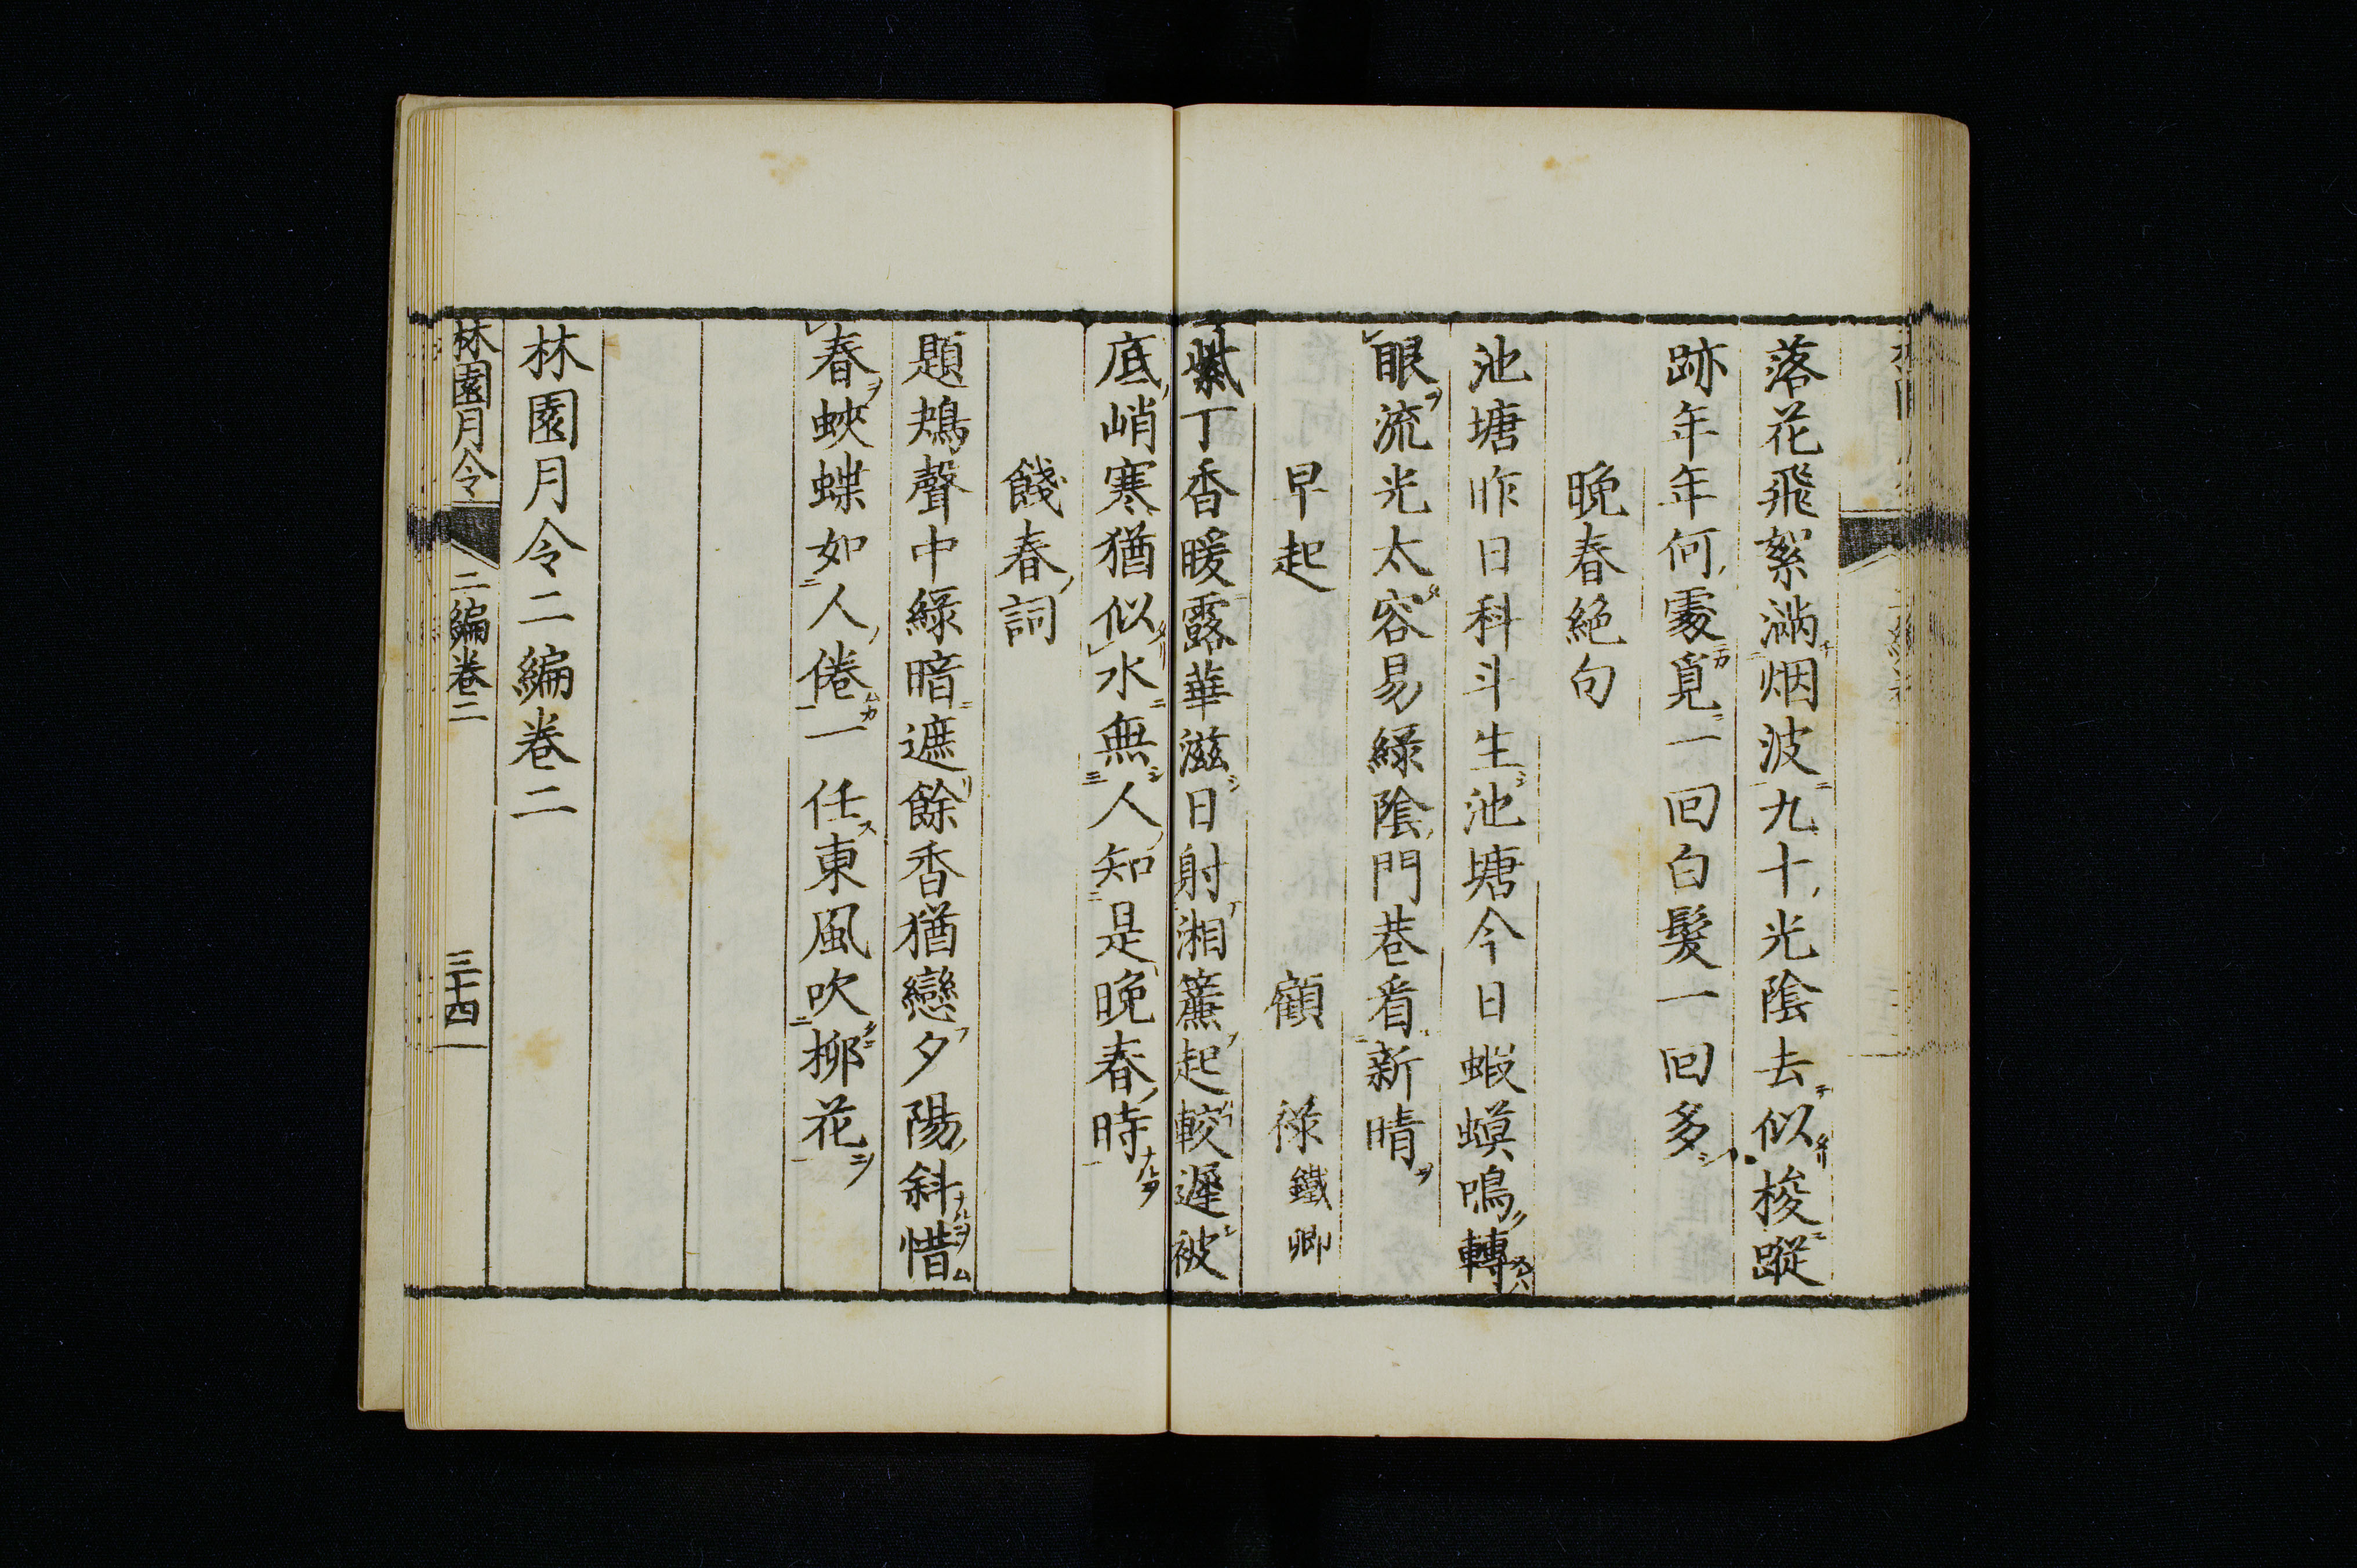 落花飛絮滿烟波九十光陰去似梭蹤
跡年年何處覓一回白髮一回多
晚春絕句
池塘昨日科斗生池塘今日蝦蟆鳴轉
眼流光太容易綠陰門巷看新晴
早起 顧祿鐵卿
紫丁香暖露華滋日射湘簾起較遲被
底峭寒猶似水無人知是晚春時
餞春詞
題鴂聲中綠暗遮餘香猶戀夕陽斜惜
春蛺蝶如人倦一任東風吹柳花
林園月令二編卷二
林園月令 二編卷二 三十四